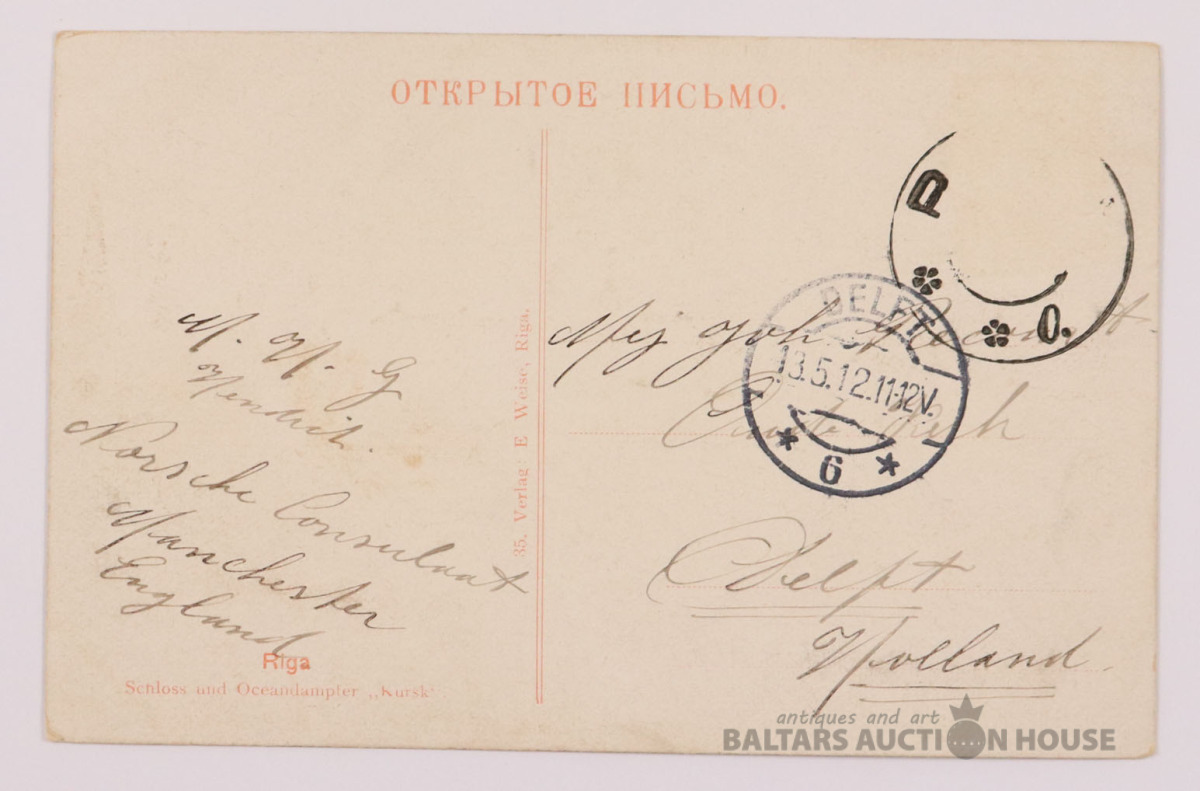 ОТКРЫТОЕ ПИСЬМО.
Р
О.
DELFT
13.5.12.11-12V.
6
M. H. G
Norsche Consulaat
Manchester
England
35. Verlag: E Weise, Riga.
Delft
Holland
Riga
Schloss und Oceandampfer „Kursk“.
antiques and art
BALTARS AUCTION HOUSE